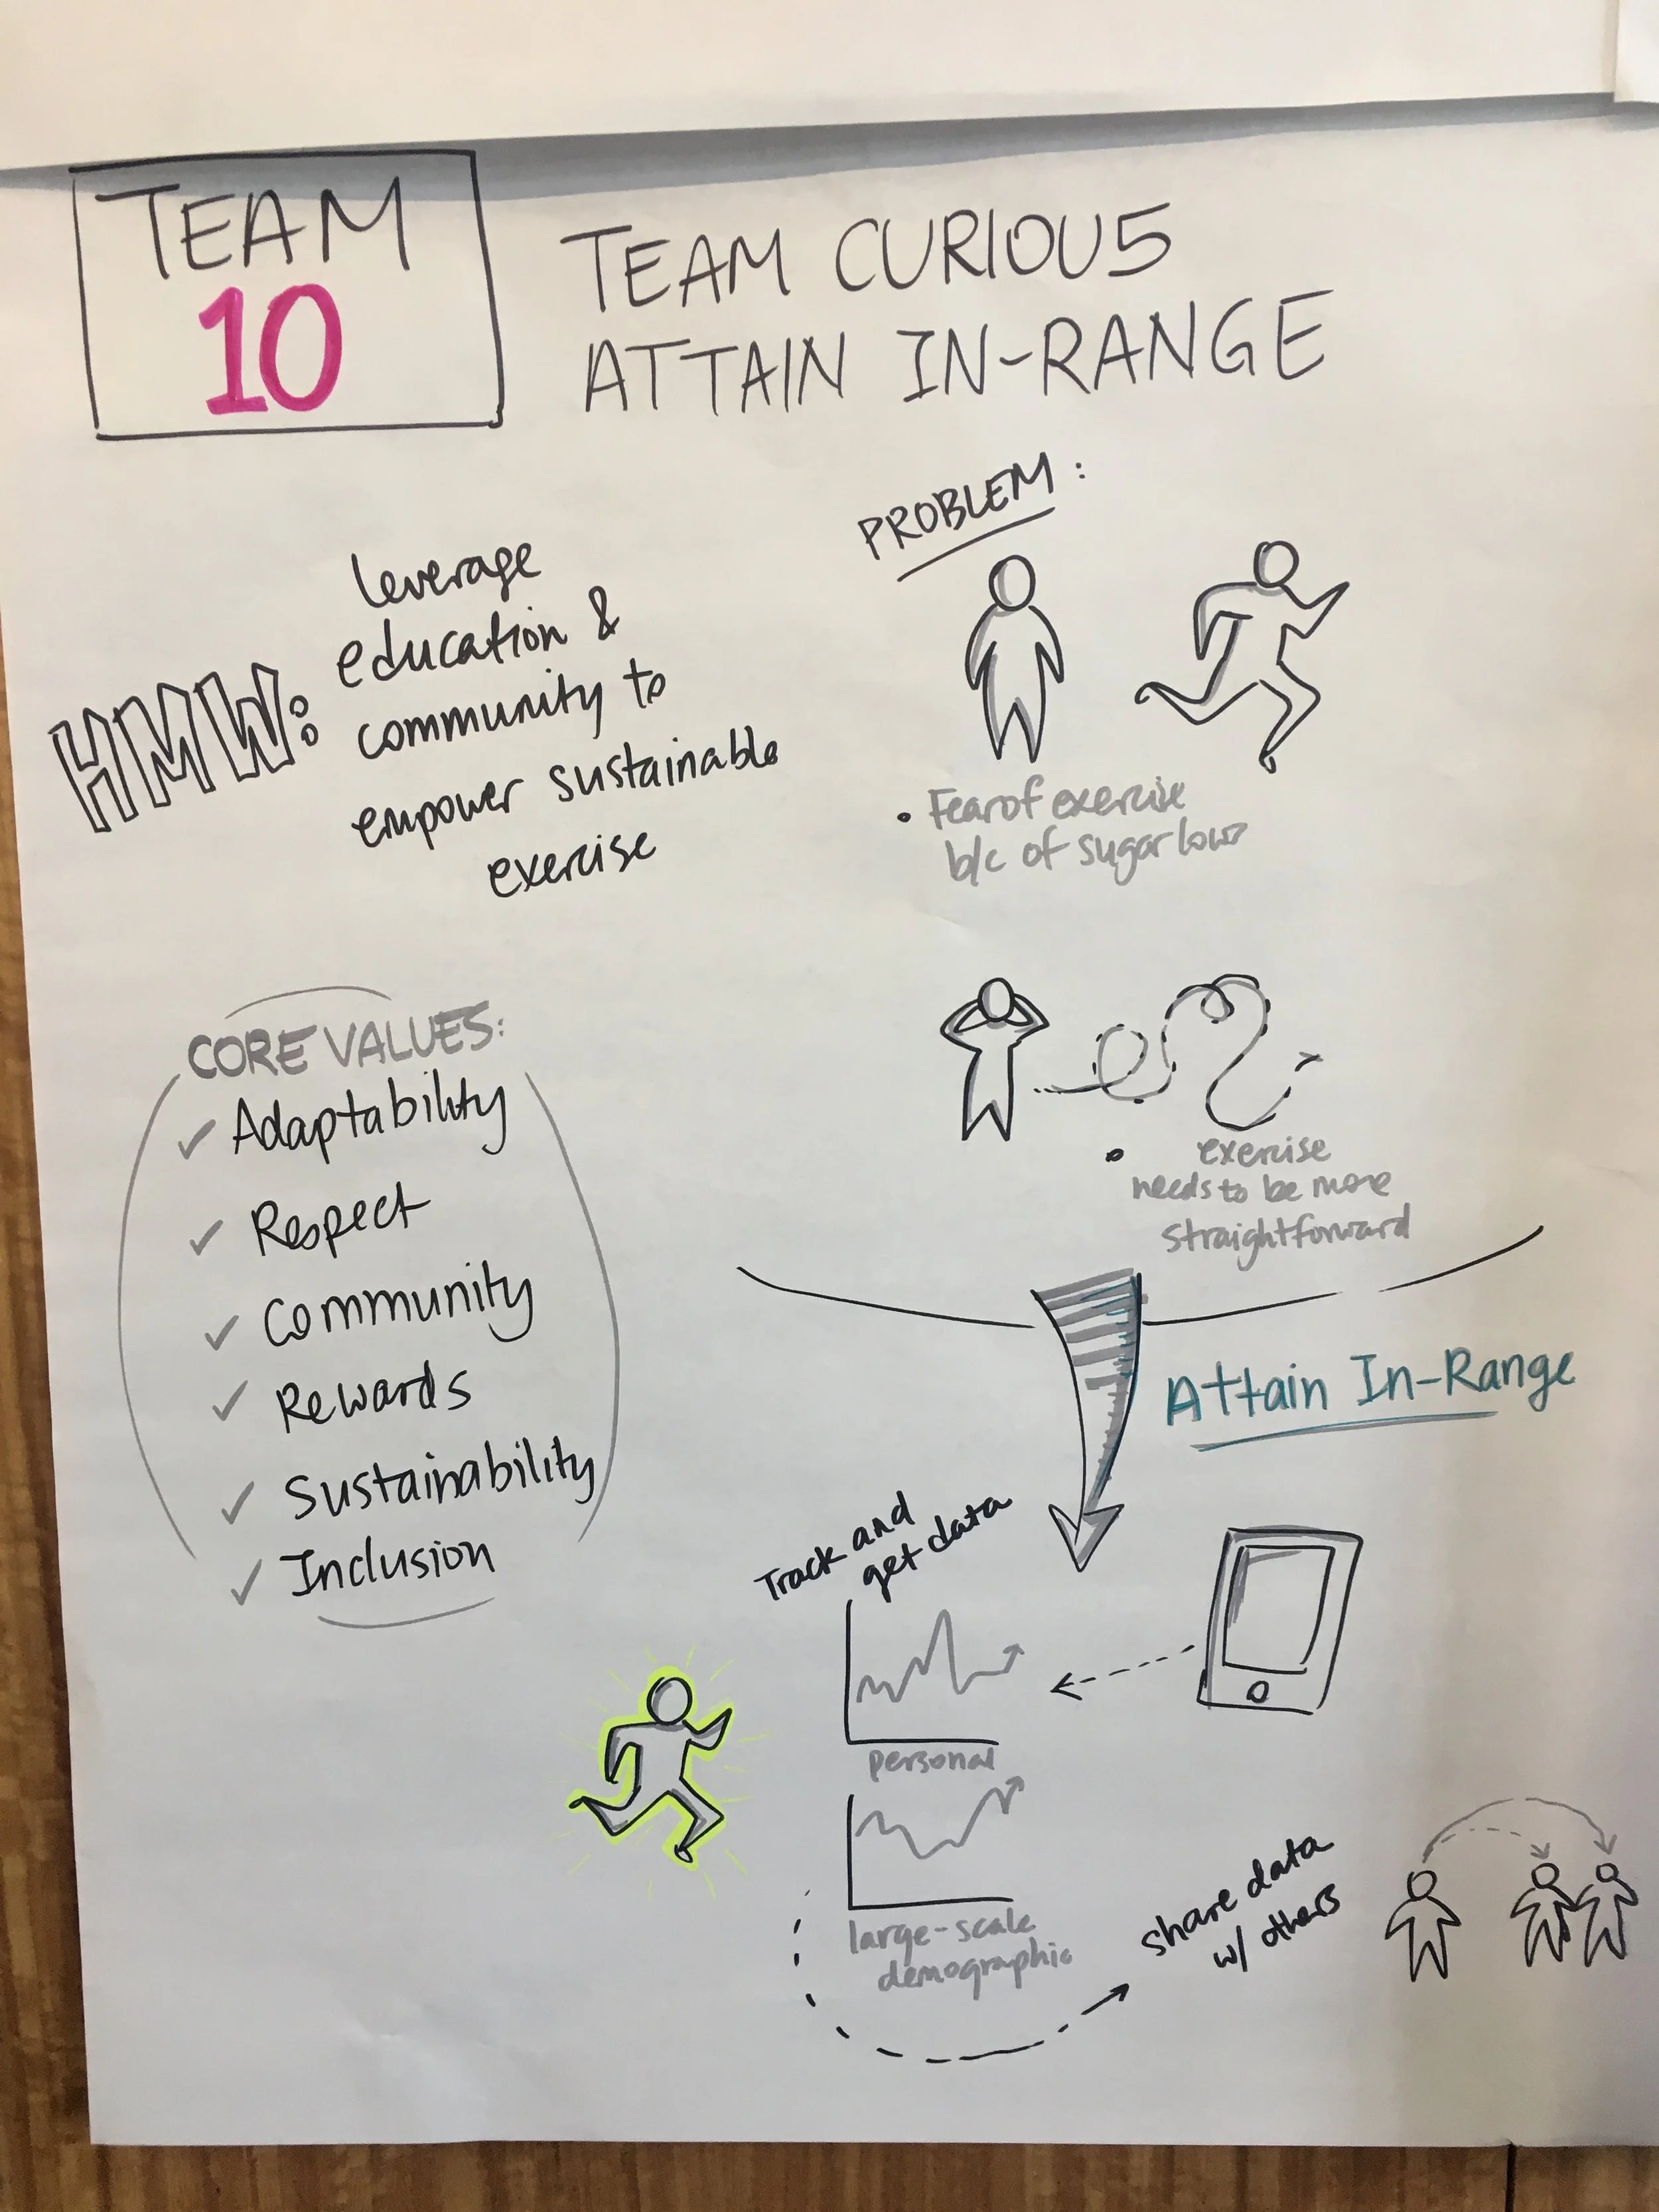 TEAM
10
TEAM CURIOU5
ATTAIN IN-RANGE
HMW:
leverage
education &
community to
empower sustainable
exercise
PROBLEM:
• Fear of exercise
b/c of sugar lows
• exercise
needs to be more
straightforward
CORE VALUES:
✓ Adaptability
✓ Respect
✓ Community
✓ Rewards
✓ Sustainability
✓ Inclusion
Attain In-Range
Track and
get data
personal
large-scale
demographic
share data
w/ others